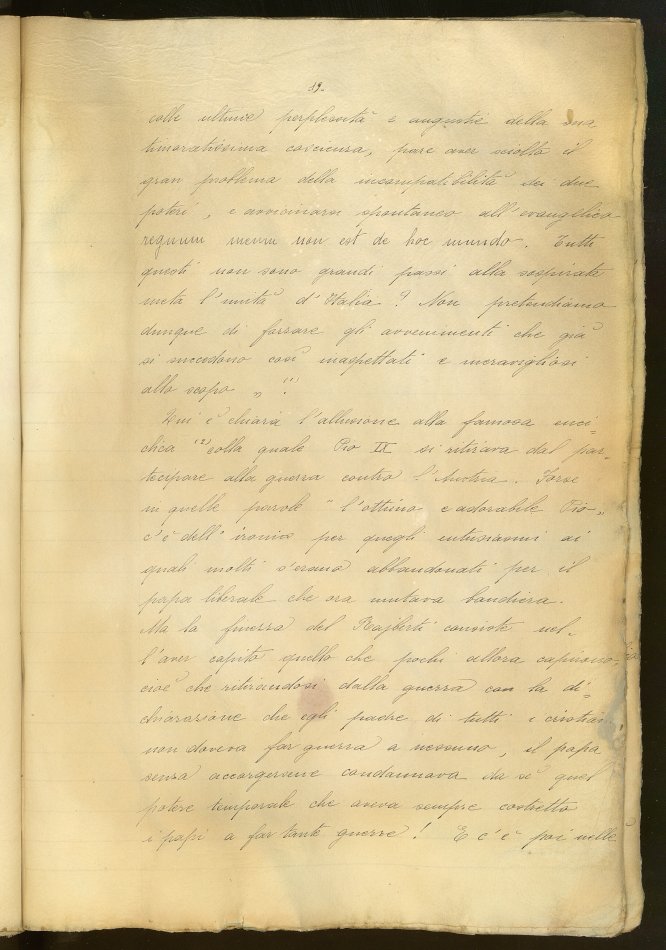 19.
colle ultime perplessità e angustie della sua
timoratissima coscienza, pare aver sciolto il
gran problema della incompatibilità dei due
poteri, e avvicinarsi spontaneo all'evangelico
regnum meum non est de hoc mundo. Tutti
questi non sono grandi passi alla sospirata
meta l'unità d'Italia? Non pretendiamo
dunque di forzare gli avvenimenti che già
si succedono così inaspettati e meravigliosi
allo scopo „ (1)
Qui è chiara l'allusione alla famosa enci-
clica (2) colla quale Pio IX si ritirava dal par-
tecipare alla guerra contro l'Austria. Forse
in quelle parole " l'ottimo e adorabile Pio „
c'è dell'ironia per quegli entusiasmi ai
quali molti s'erano abbandonati per il
papa liberale che ora mutava bandiera.
Ma la finezza del Rajberti consiste nel-
l'aver capito quello che pochi allora capirono:
cioè che ritirandosi dalla guerra con la di-
chiarazione che egli padre di tutti i cristiani
non doveva far guerra a nessuno, il papa
senza accorgersene condannava da sè quel
potere temporale che aveva sempre costretto
i papi a far tante guerre! E c'è poi nelle